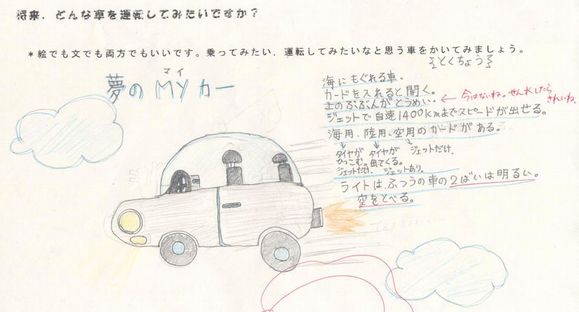 将来、どんな車を運転してみたいですか？
*絵でも文でも両方でもいいです。乗ってみたい、運転してみたいなと思う車をかいてみましょう。
夢のMYカー
マイ
とくちょう
海にもぐれる車。
カードを入れると開く。
上のぶぶんがとうめい。
今はないね。せん水したらきれいね。
ジェットで自速1400kmまでスピードが出せる。
海用、陸用、空用のカードがある。
タイヤがひっこむ。ジェットだけ。
タイヤが出てくる。ジェットあり。
ジェットだけ。
ライトは、ふつうの車の2ばいは明るい。
空をとべる。